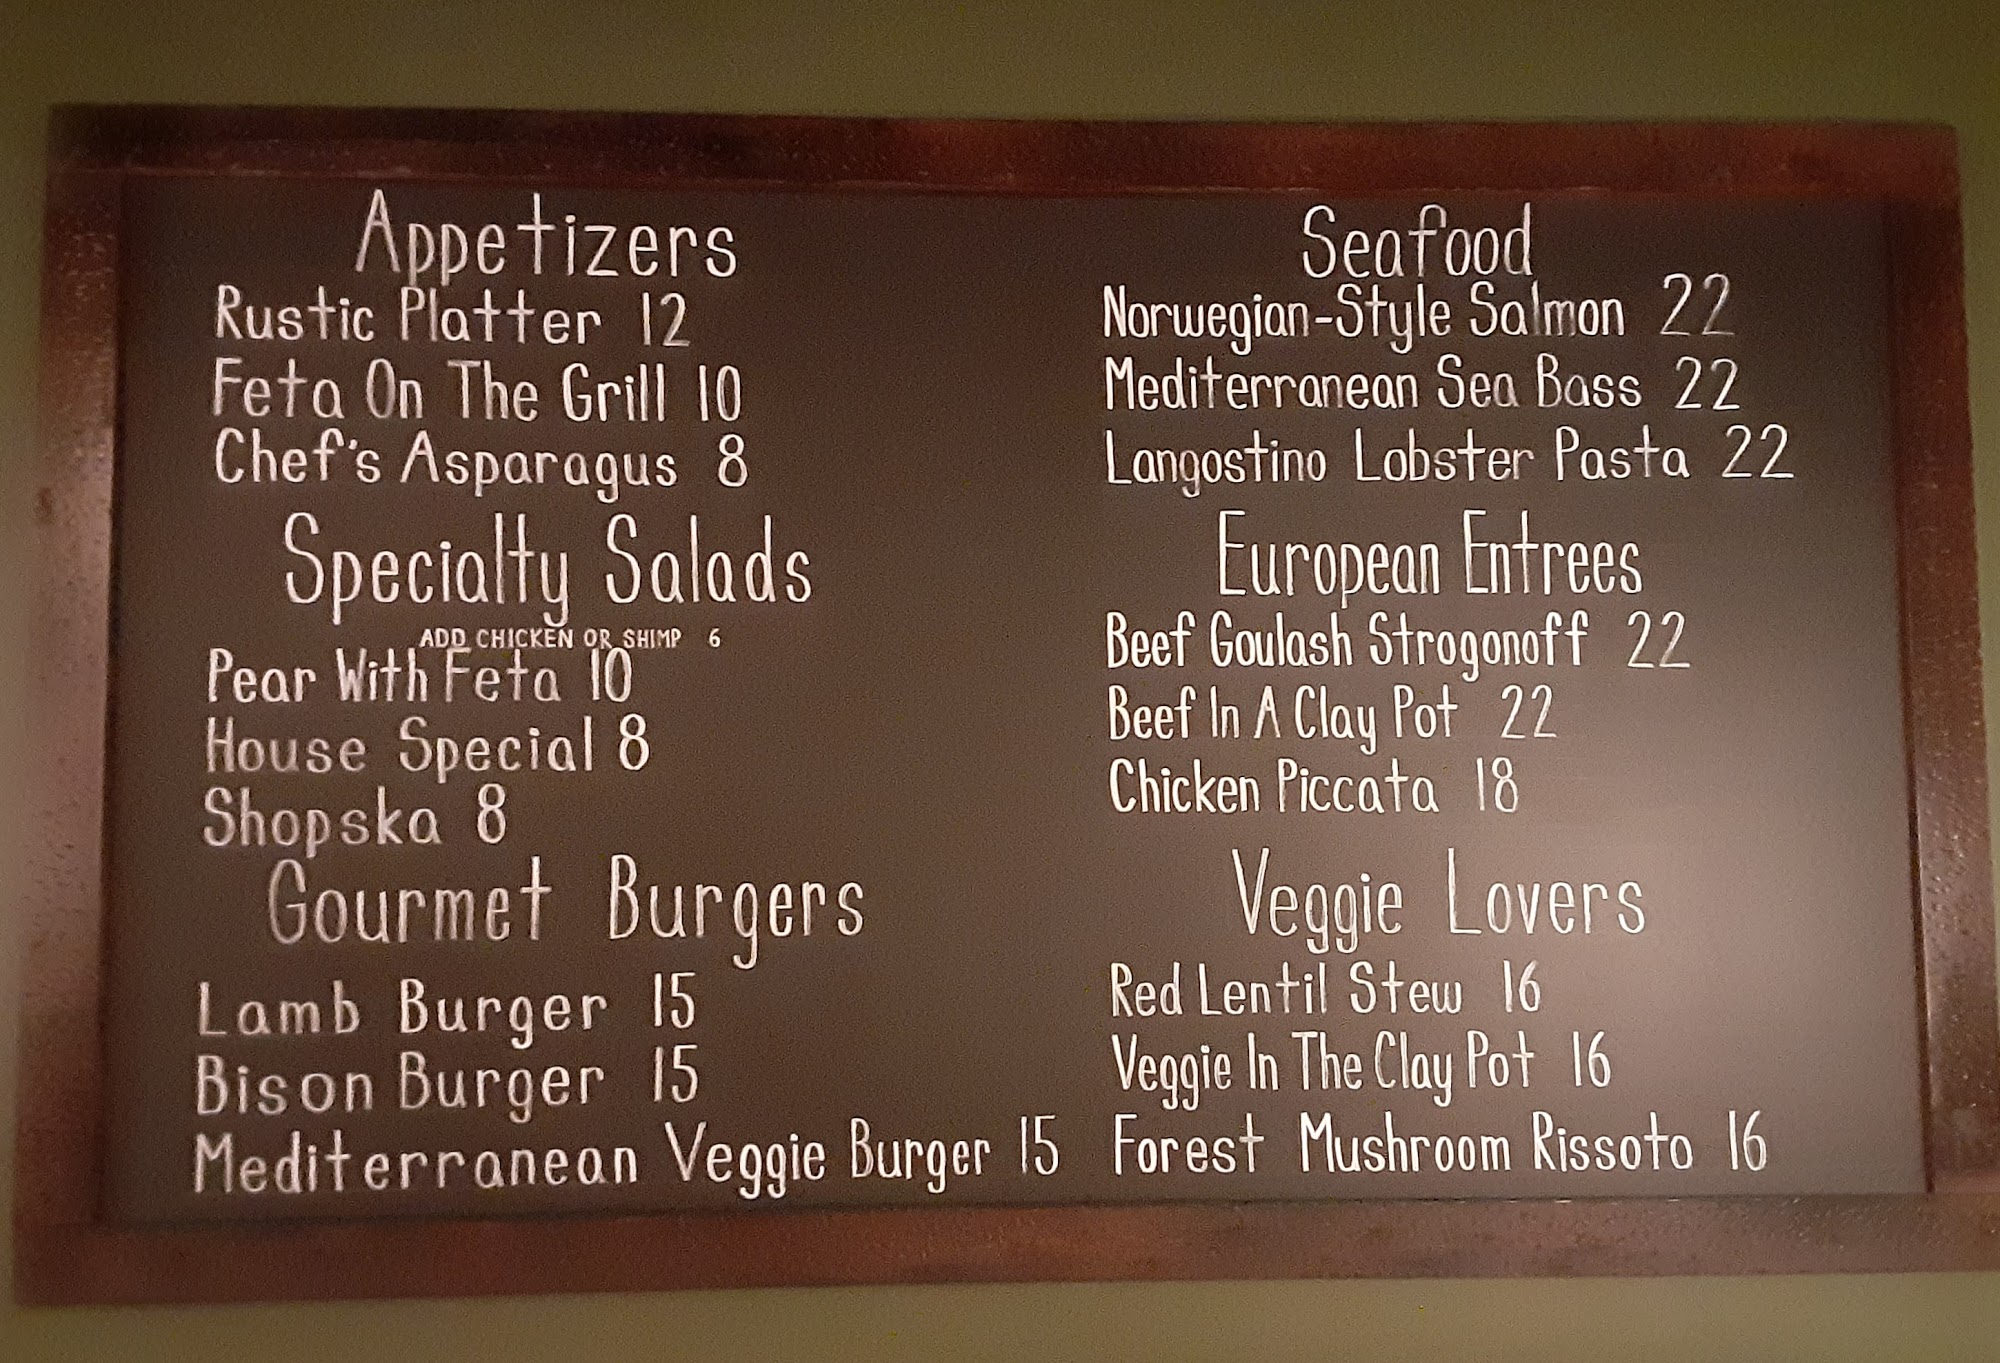 Appetizers
Rustic Platter 12
Feta On The Grill 10
Chef's Asparagus 8
Specialty Salads
ADD CHICKEN OR SHIMP 6
Pear With Feta 10
House Special 8
Shopska 8
Gourmet Burgers
Lamb Burger 15
Bison Burger 15
Mediterranean Veggie Burger 15
Seafood
Norwegian-Style Salmon 22
Mediterranean Sea Bass 22
Langostino Lobster Pasta 22
European Entrees
Beef Goulash Strogonoff 22
Beef In A Clay Pot 22
Chicken Piccata 18
Veggie Lovers
Red Lentil Stew 16
Veggie In The Clay Pot 16
Forest Mushroom Rissoto 16